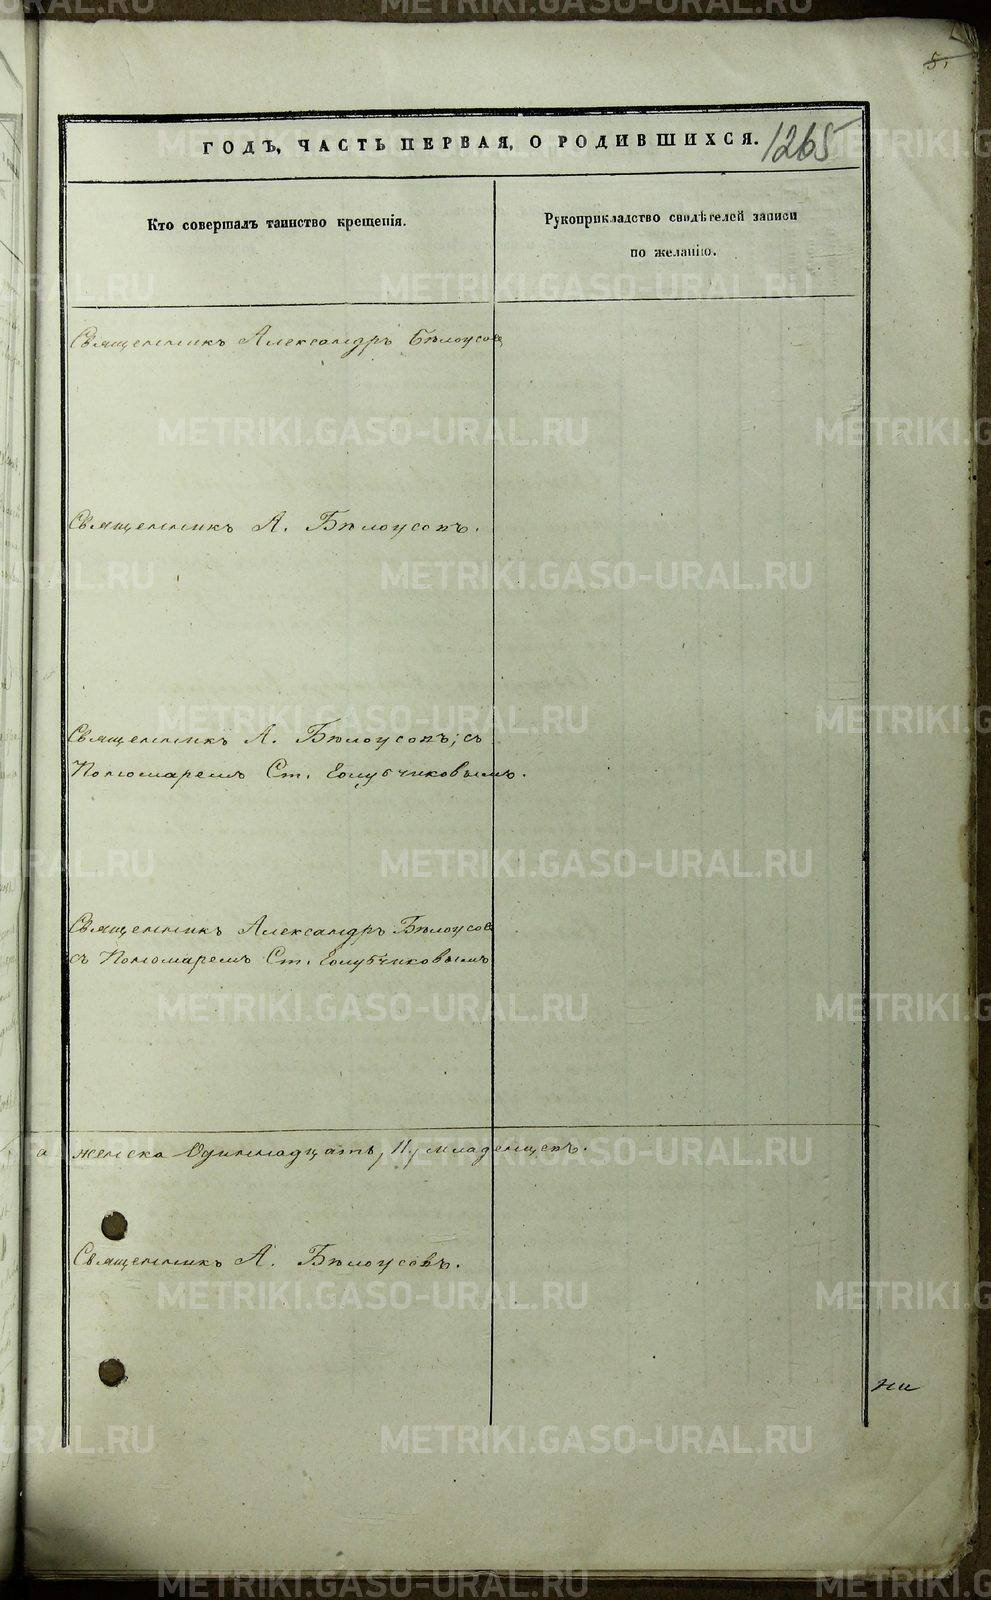 5.
ГОДЪ, ЧАСТЬ ПЕРВАЯ, О РОДИВШИХСЯ. 1265
Кто совершалъ таинство крещенія.
Рукоприкладство свидѣтелей записи
по желанію.
Священникъ Александръ Бѣлоусов
Священникъ А. Бѣлоусовъ.
Священникъ А. Бѣлоусовъ; съ
Пономаремъ Ст. Голубчиковымъ.
Священникъ Александръ Бѣлоусов
съ Пономаремъ Ст. Голубчиковымъ
а женска Одиннадцать, 11, младенцевъ.
Священникъ А. Бѣлоусовъ.
ни
METRIKI.GASO-URAL.RU